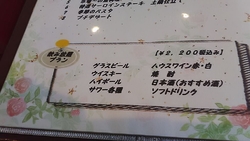 季節のパスタ
プチデザート
飲み放題
プラン
【¥2,200税込み】
グラスビール ハウスワイン赤・白
ウイスキー 焼酎
ハイボール 日本酒(おすすめ酒)
サワー各種 ソフトドリンク